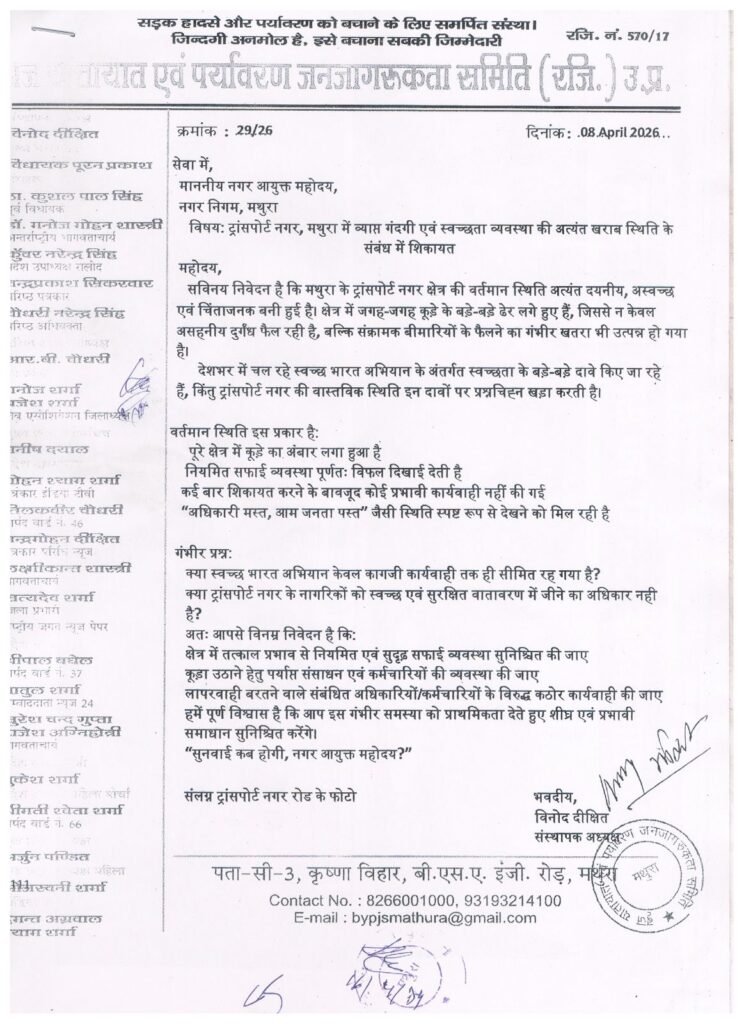 सड़क हादसे और पर्यावरण को बचाने के लिए समर्पित संस्था।
जिन्दगी अनमोल है, इसे बचाना सबकी जिम्मेदारी
रजि. नं. 570/17
यातायात एवं पर्यावरण जनजागरूकता समिति (रजि.) उ.प्र.
विनोद दीक्षित
विधायक पूरन प्रकाश
कुशल पाल सिंह
एवं विधायक
डॉ. मनोज मोहन शास्त्री
अन्तर्राष्ट्रीय भागवताचार्य
नरेन्द्र सिंह
उपाध्यक्ष रालोद
चन्द्रप्रकाश सिकरवार
वरिष्ठ पत्रकार
चौधरी नरेन्द्र सिंह
वरिष्ठ अधिवक्ता
आर.बी. चौधरी
मनोज शर्मा
एसोशिएशन जिलाध्यक्ष
दयाल
मोहन श्याम शर्मा
पत्रकार इंडिया टीवी
चौधरी
पार्षद वार्ड नं. 46
चन्द्रमोहन दीक्षित
न्यूज
लक्ष्मीकान्त शास्त्री
भागवताचार्य
सत्यदेव शर्मा
जिला प्रभारी
राष्ट्रीय जगत न्यूज पेपर
बघेल
पार्षद वार्ड नं. 37
शर्मा
संवाददाता न्यूज 24
सुरेश चन्द गुप्ता
अग्निहोत्री
भागवताचार्य
मुकेश शर्मा
श्रीमती श्वेता शर्मा
पार्षद वार्ड नं. 66
अर्जुन पण्डित
शर्मा
अग्रवाल
श्याम शर्मा
क्रमांक : 29/26
दिनांक: .08 April 2026...
सेवा में,
माननीय नगर आयुक्त महोदय,
नगर निगम, मथुरा
विषय: ट्रांसपोर्ट नगर, मथुरा में व्याप्त गंदगी एवं स्वच्छता व्यवस्था की अत्यंत खराब स्थिति के
संबंध में शिकायत
महोदय,
सविनय निवेदन है कि मथुरा के ट्रांसपोर्ट नगर क्षेत्र की वर्तमान स्थिति अत्यंत दयनीय, अस्वच्छ
एवं चिंताजनक बनी हुई है। क्षेत्र में जगह-जगह कूड़े के बड़े-बड़े ढेर लगे हुए हैं, जिससे न केवल
असहनीय दुर्गंध फैल रही है, बल्कि संक्रामक बीमारियों के फैलने का गंभीर खतरा भी उत्पन्न हो गया
है।
देशभर में चल रहे स्वच्छ भारत अभियान के अंतर्गत स्वच्छता के बड़े-बड़े दावे किए जा रहे
हैं, किंतु ट्रांसपोर्ट नगर की वास्तविक स्थिति इन दावों पर प्रश्नचिह्न खड़ा करती है।
वर्तमान स्थिति इस प्रकार है:
पूरे क्षेत्र में कूड़े का अंबार लगा हुआ है
नियमित सफाई व्यवस्था पूर्णतः विफल दिखाई देती है
कई बार शिकायत करने के बावजूद कोई प्रभावी कार्यवाही नहीं की गई
“अधिकारी मस्त, आम जनता पस्त” जैसी स्थिति स्पष्ट रूप से देखने को मिल रही है
गंभीर प्रश्न:
क्या स्वच्छ भारत अभियान केवल कागजी कार्यवाही तक ही सीमित रह गया है?
क्या ट्रांसपोर्ट नगर के नागरिकों को स्वच्छ एवं सुरक्षित वातावरण में जीने का अधिकार नही
है?
अतः आपसे विनम्र निवेदन है कि:
क्षेत्र में तत्काल प्रभाव से नियमित एवं सुदृढ़ सफाई व्यवस्था सुनिश्चित की जाए
कूड़ा उठाने हेतु पर्याप्त संसाधन एवं कर्मचारियों की व्यवस्था की जाए
लापरवाही बरतने वाले संबंधित अधिकारियों/कर्मचारियों के विरुद्ध कठोर कार्यवाही की जाए
हमें पूर्ण विश्वास है कि आप इस गंभीर समस्या को प्राथमिकता देते हुए शीघ्र एवं प्रभावी
समाधान सुनिश्चित करेंगे।
“सुनवाई कब होगी, नगर आयुक्त महोदय?”
संलग्न ट्रांसपोर्ट नगर रोड के फोटो
भवदीय,
विनोद दीक्षित
संस्थापक अध्यक्ष
पता-सी-3, कृष्णा विहार, बी.एस.ए. इंजी. रोड़, मथुरा
Contact No. : 8266001000, 93193214100
E-mail : bypjsmathura@gmail.com
यातायात एवं पर्यावरण जनजागरूकता समिति
मथुरा